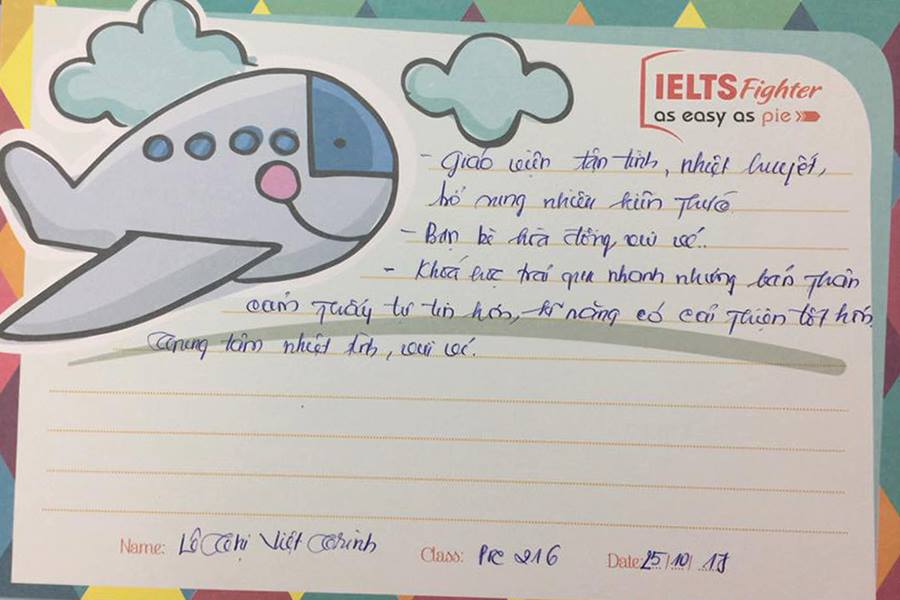 IELTS Fighter
as easy as pie
- Giáo viên tận tình, nhiệt huyết,
bổ sung nhiều kiến thức
- Bạn bè hòa đồng, vui vẻ..
- Khoá học trải qua nhanh nhưng bản thân
cảm thấy tự tin hơn, kĩ năng có cải thiện tốt hơn.
Trung tâm nhiệt tình, vui vẻ.
Name: Lô Thị Việt Trinh
Class: Pre 216
Date: 25/10/17